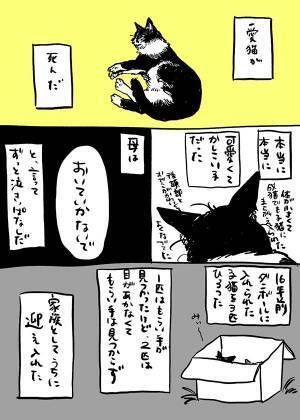 愛猫が
死んだ
本当に
本当に
可愛くて
かしこい子
だった
体が小さくて
成猫でも子猫に
まちがえられて
母は
おいていかないで
と、言って
ずっと泣きっぱなしだ
16年前
ダンボールに
入れられた
子猫を3匹
ひろった
みぃ
1匹はもらい手が
見つかったけど、2匹は
目があかなくて
もらい手は見つからず
家族としてうちに
迎え入れた